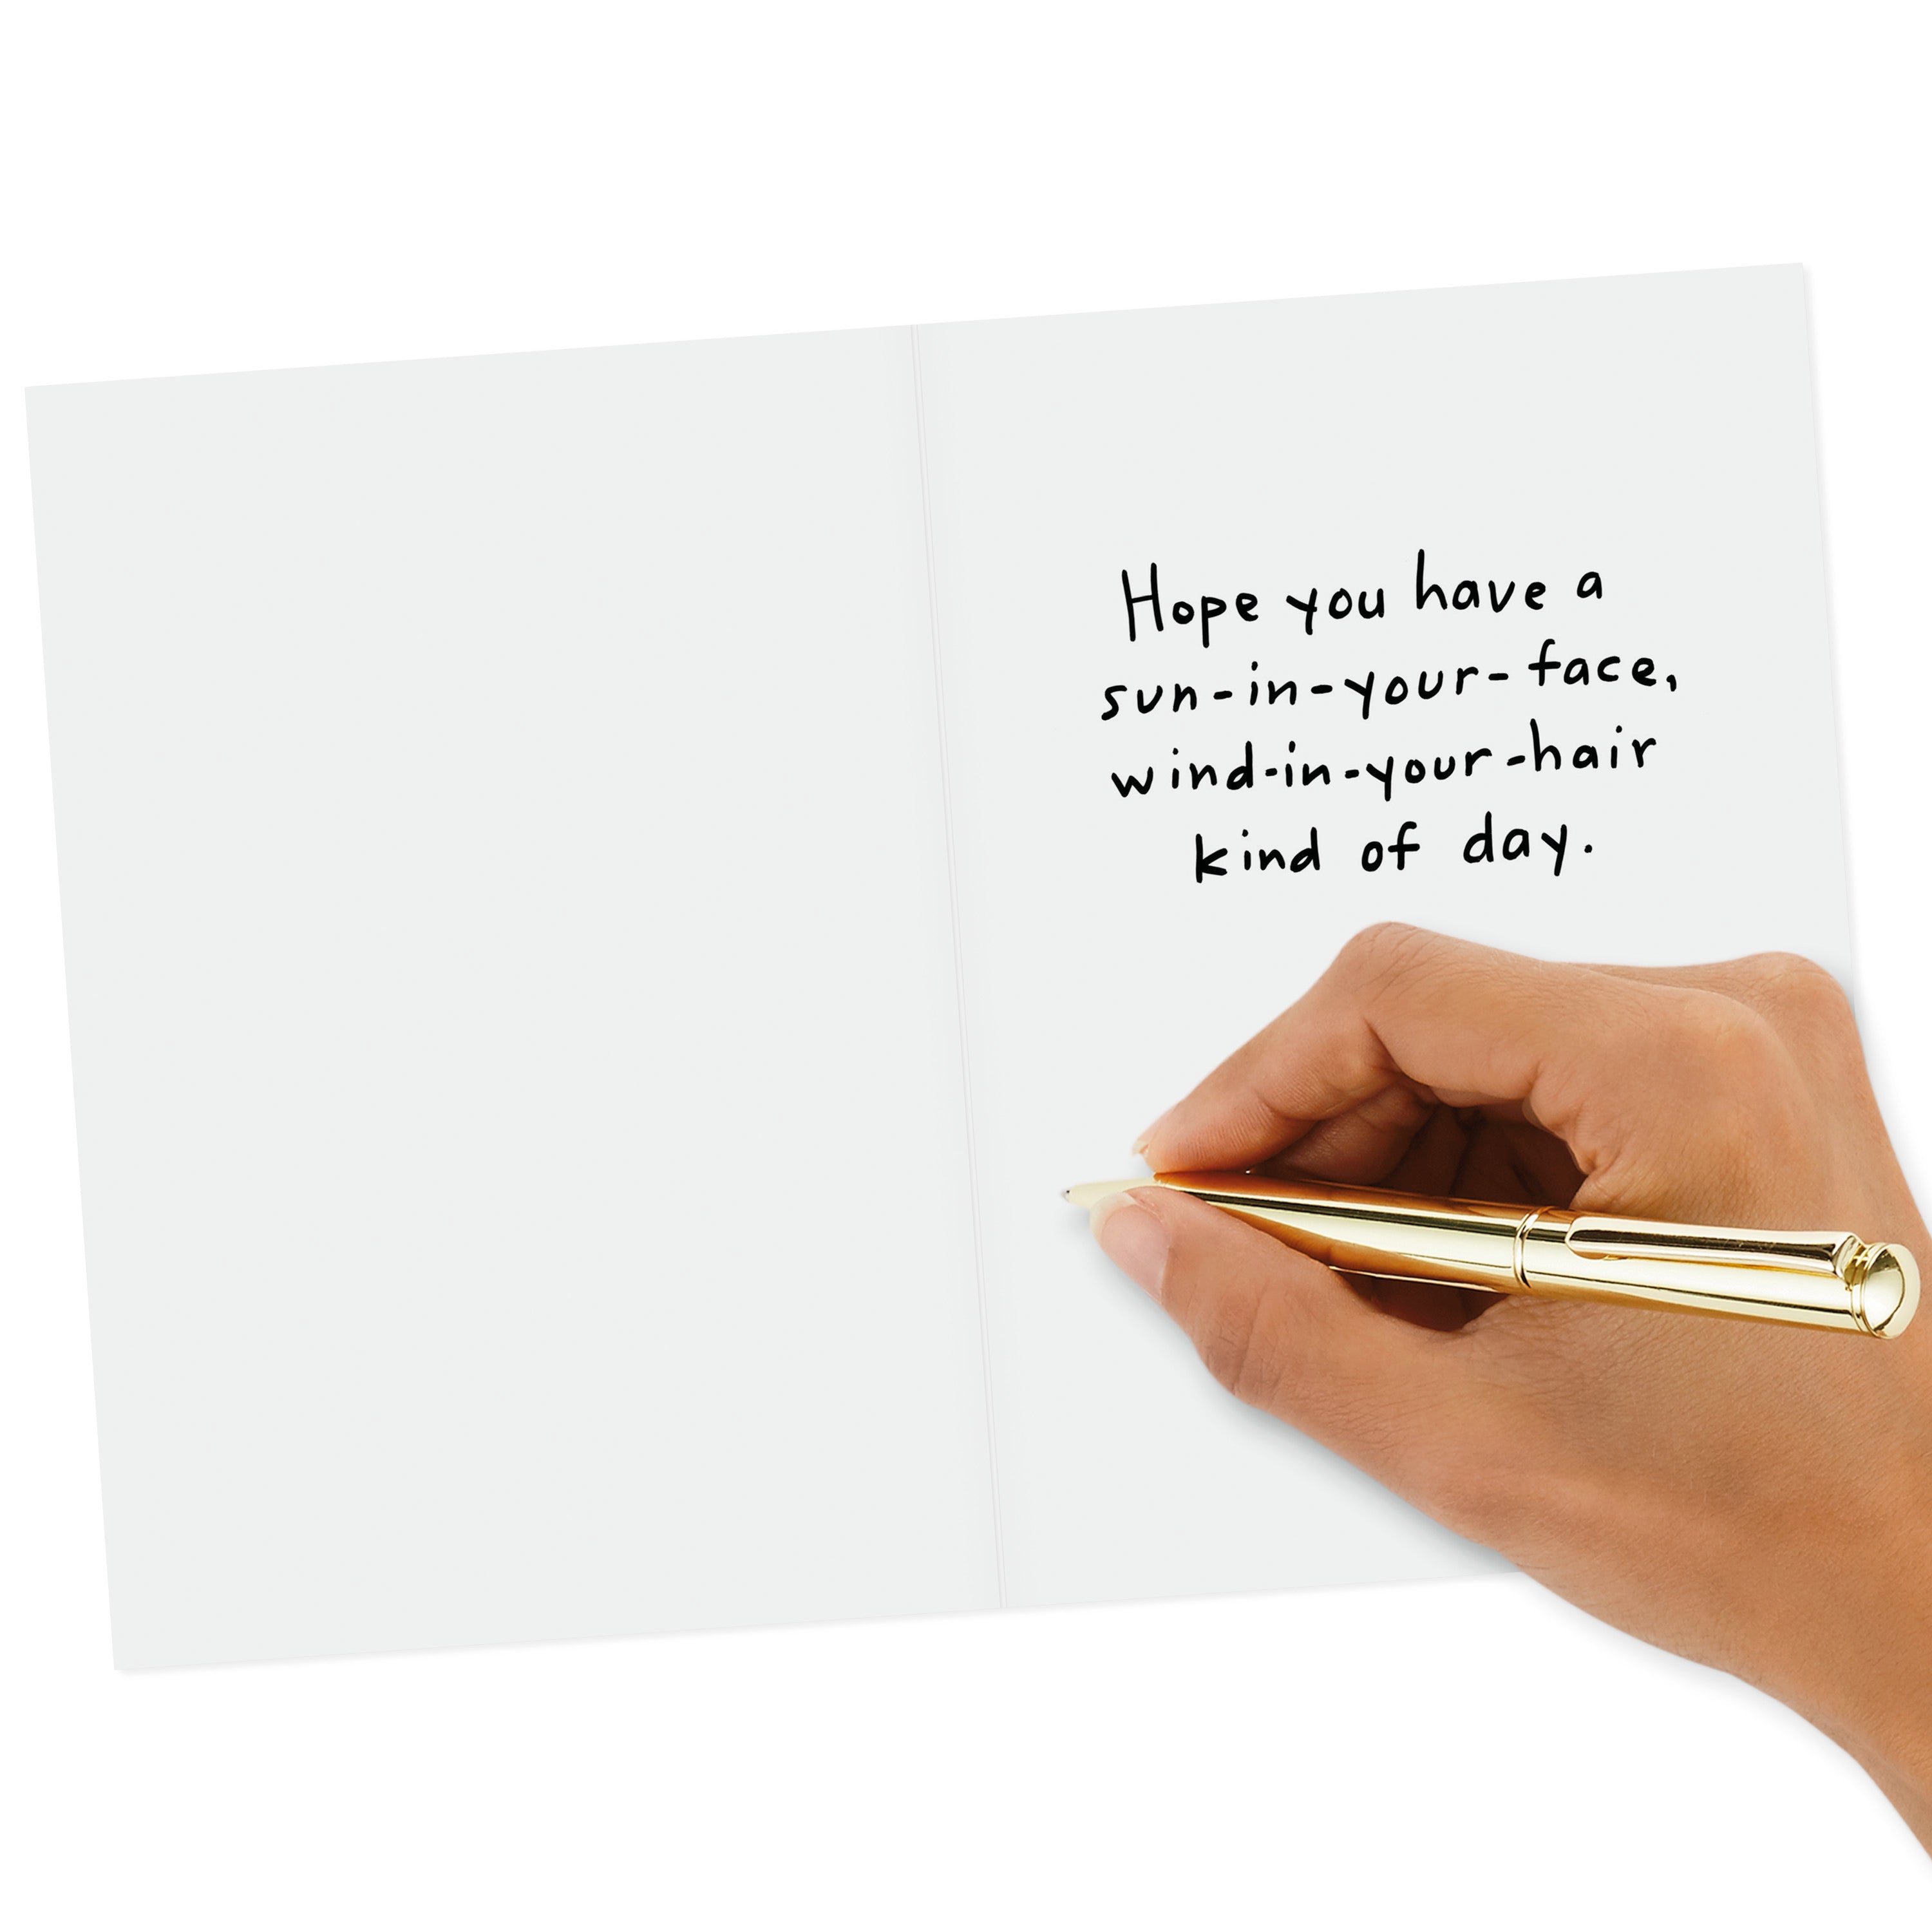 Hope you have a
sun-in-your-face,
wind-in-your-hair
kind of day.